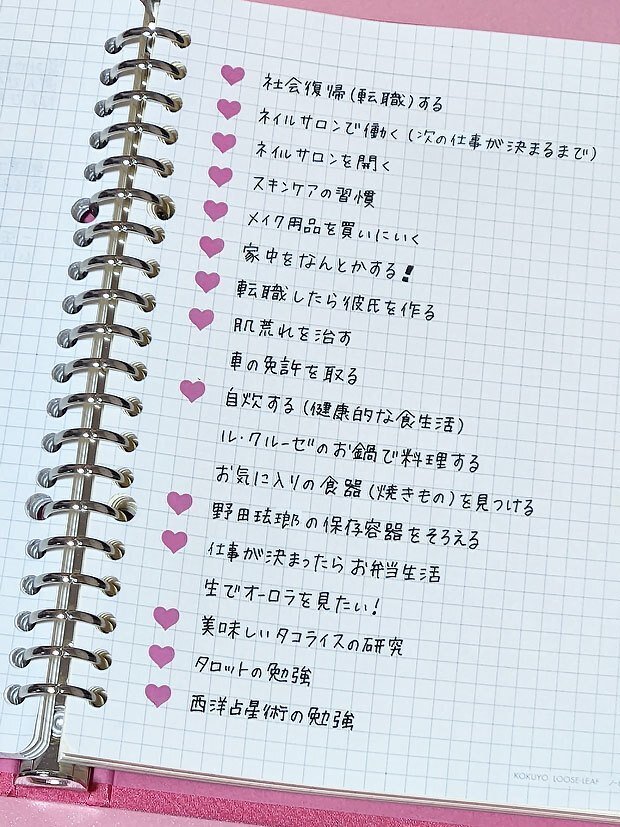 社会復帰(転職)する
ネイルサロンで働く(次の仕事が決まるまで)
ネイルサロンを開く
スキンケアの習慣
メイク用品を買いにいく
家中をなんとかする!
転職したら彼氏を作る
肌荒れを治す
車の免許を取る
自炊する(健康的な食生活)
ル・クルーゼのお鍋で料理する
お気に入りの食器(焼きもの)を見つける
野田琺瑯の保存容器をそろえる
仕事が決まったらお弁当生活
生でオーロラを見たい!
美味しいタコライスの研究
タロットの勉強
西洋占星術の勉強
KOKUYO LOOSE-LEAF